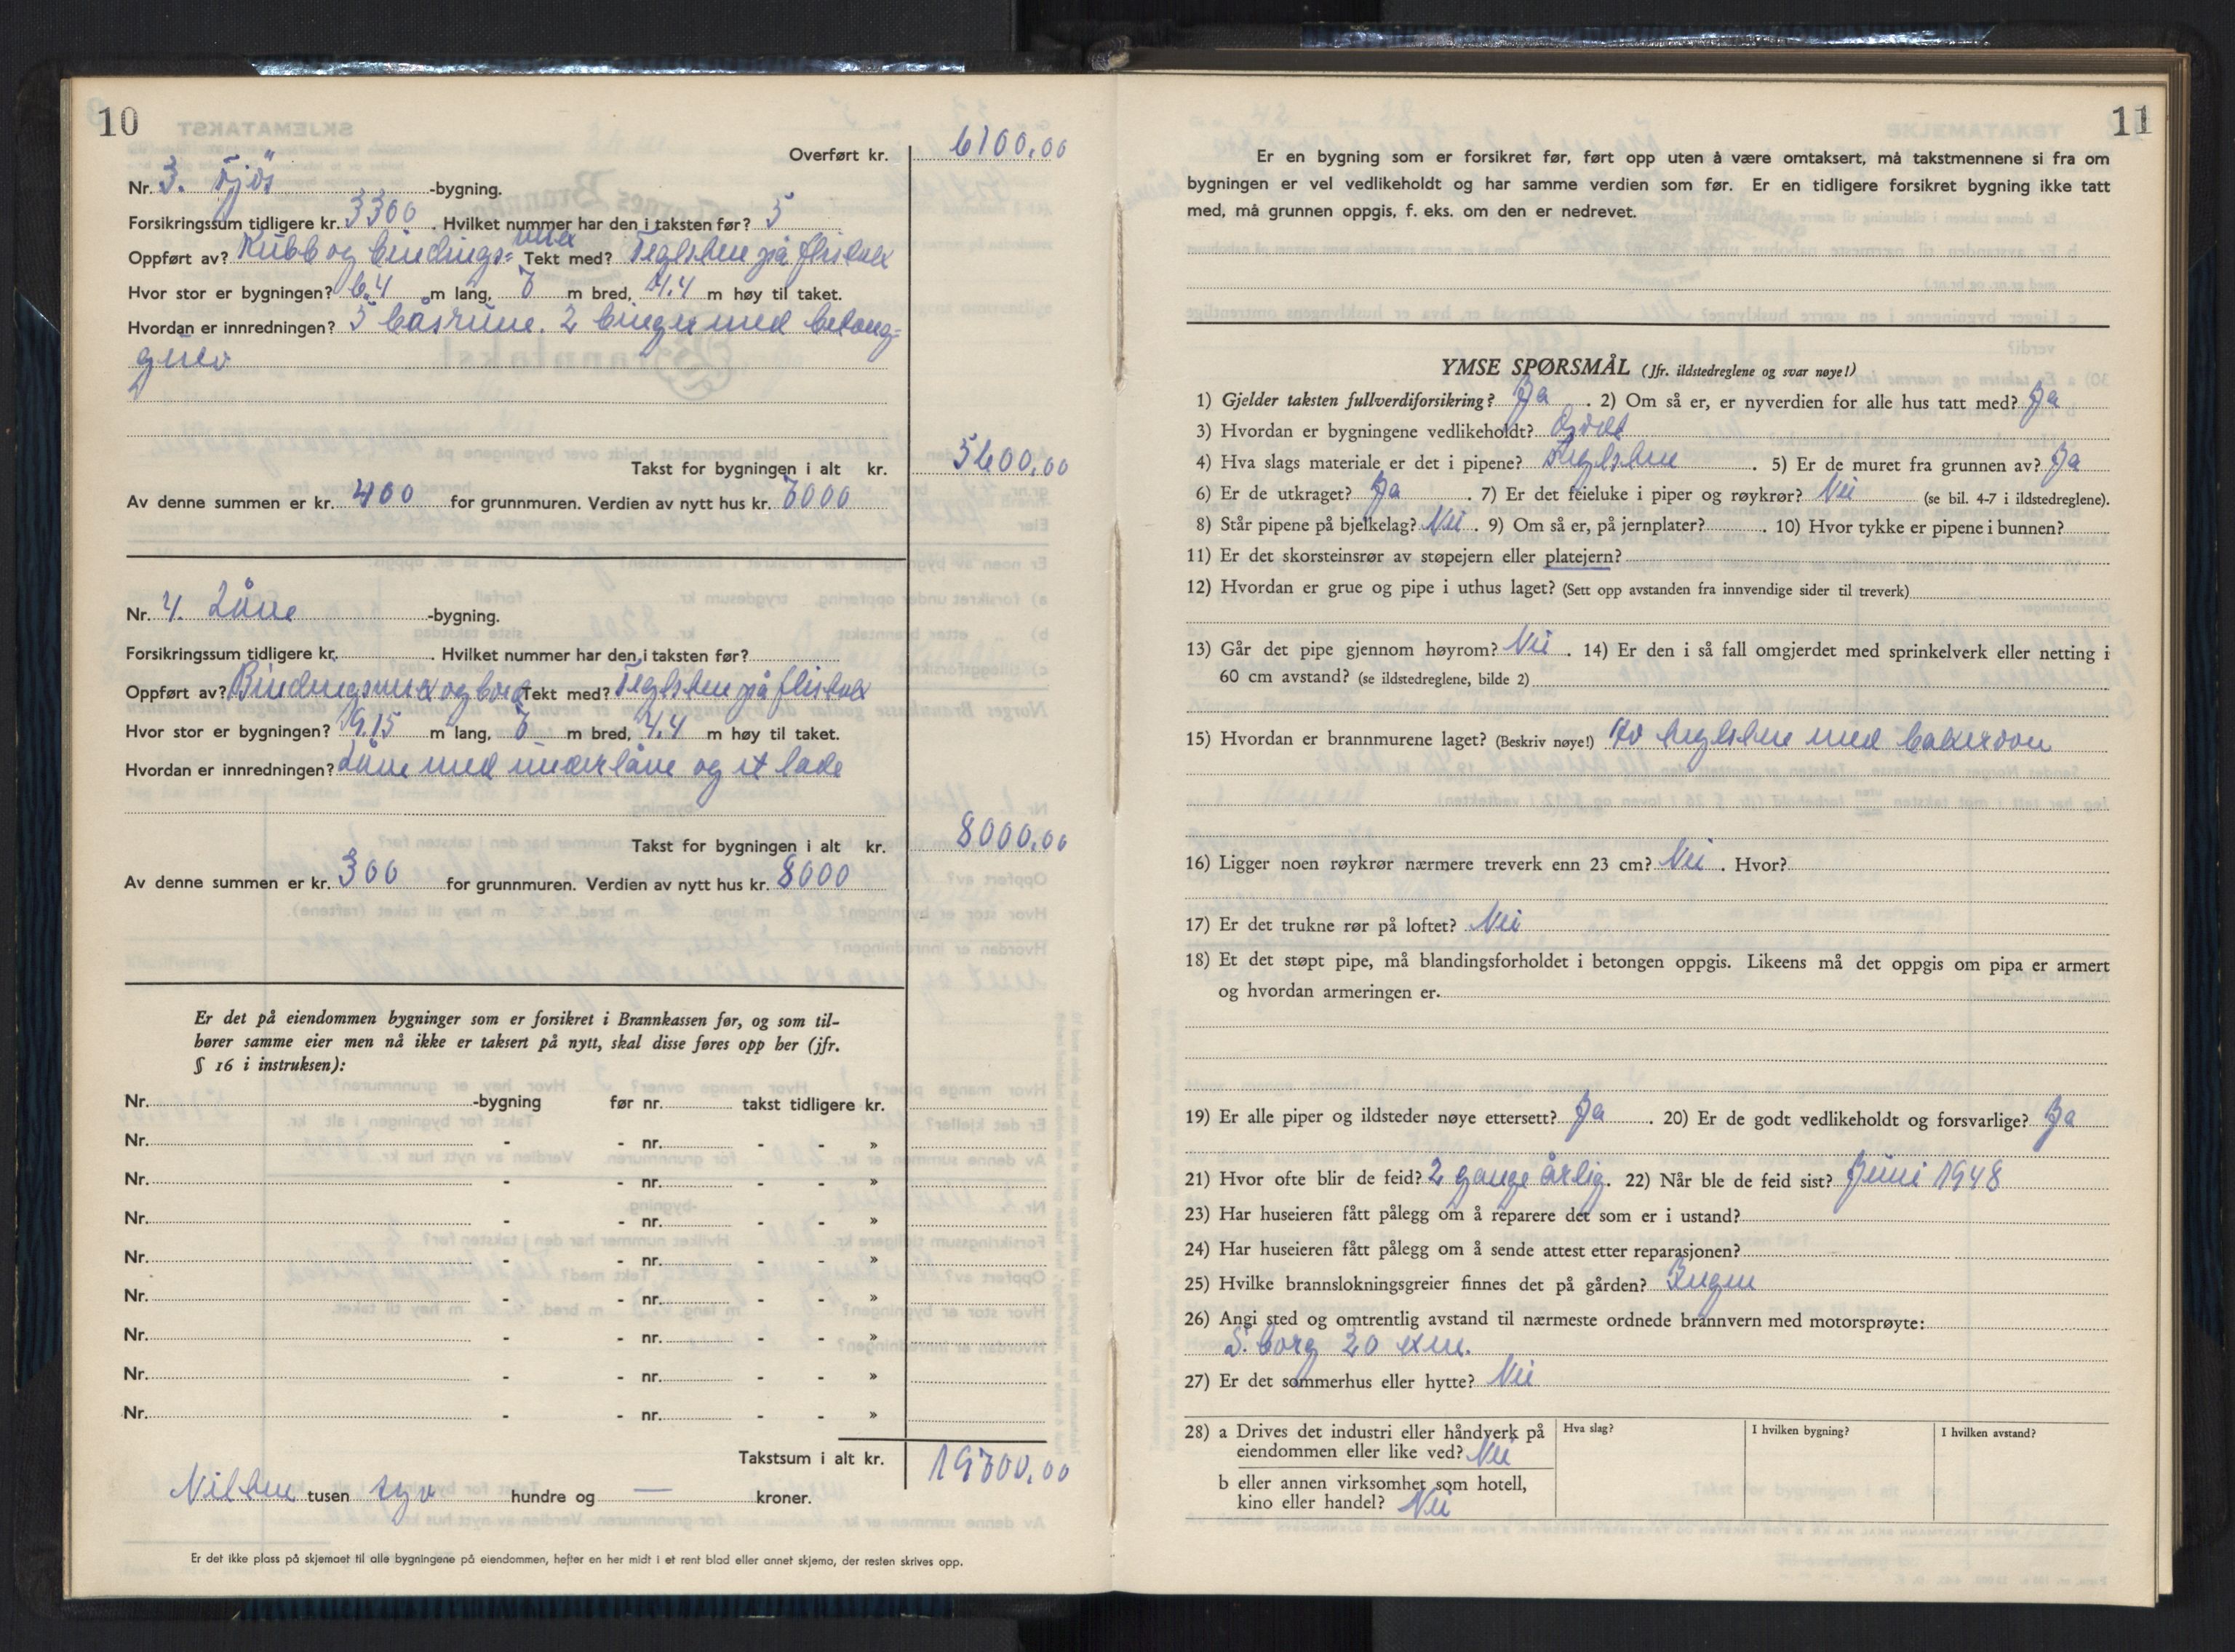 10
Overført kr. 6100,00
Nr. 3. Fjös -bygning.
Forsikringssum tidligere kr. 3300. Hvilket nummer har den i taksten før? 5
Oppført av? Kubb og bindings= verk Tekt med? Teglsten på flistak
Hvor stor er bygningen? 6.4 m lang, 7 m bred, 4.4 m høy til taket.
Hvordan er innredningen? 5 båsrum. 2 binger med betong=
gulv
Takst for bygningen i alt kr. 5600,00
Av denne summen er kr. 400 for grunnmuren. Verdien av nytt hus kr. 7000
Nr. 4. Låve -bygning.
Forsikringssum tidligere kr. . Hvilket nummer har den i taksten før?
Oppført av? Bindingsverk og bord Tekt med? Teglsten på flistak
Hvor stor er bygningen? 9,15 m lang, 7 m bred, 4.4 m høy til taket.
Hvordan er innredningen? Låve med underlåve og et lade
Takst for bygningen i alt kr. 8000,00
Av denne summen er kr. 300 for grunnmuren. Verdien av nytt hus kr. 8000
Er det på eiendommen bygninger som er forsikret i Brannkassen før, og som til-
hører samme eier men nå ikke er taksert på nytt, skal disse føres opp her (jfr.
§ 16 i instruksen):
Nr. -bygning før nr. takst tidligere kr.
Nr. - - nr. - - »
Nr. - - nr. - - »
Nr. - - nr. - - »
Nr. - - nr. - - »
Nr. - - nr. - - »
Nr. - - nr. - - »
Nr. - - nr. - - »
Nr. - - nr. - - »
Takstsum i alt kr. 19700,00
Nitten tusen syv hundre og — kroner.
Er det ikke plass på skjemaet til alle bygningene på eiendommen, hefter en her midt i et rent blad eller annet skjema, der resten skrives opp.
11
Er en bygning som er forsikret før, ført opp uten å være omtaksert, må takstmennene si fra om
bygningen er vel vedlikeholdt og har samme verdien som før. Er en tidligere forsikret bygning ikke tatt
med, må grunnen oppgis, f. eks. om den er nedrevet.
YMSE SPØRSMÅL (Jfr. ildstedreglene og svar nøye!)
1) Gjelder taksten fullverdiforsikring? Ja. 2) Om så er, er nyverdien for alle hus tatt med? Ja
3) Hvordan er bygningene vedlikeholdt? Godt
4) Hva slags materiale er det i pipene? Teglsten. 5) Er de muret fra grunnen av? Ja
6) Er de utkraget? Ja. 7) Er det feieluke i piper og røykrør? Nei (se bil. 4-7 i ildstedreglene).
8) Står pipene på bjelkelag? Nei. 9) Om så er, på jernplater? . 10) Hvor tykke er pipene i bunnen?
11) Er det skorsteinsrør av støpejern eller platejern?
12) Hvordan er grue og pipe i uthus laget? (Sett opp avstanden fra innvendige sider til treverk)
13) Går det pipe gjennom høyrom? Nei. 14) Er den i så fall omgjerdet med sprinkelverk eller netting i
60 cm avstand? (se ildstedreglene, bilde 2)
15) Hvordan er brannmurene laget? (Beskriv nøye!) Av teglsten med bakerovn
16) Ligger noen røykrør nærmere treverk enn 23 cm? Nei. Hvor?
17) Er det trukne rør på loftet? Nei
18) Et det støpt pipe, må blandingsforholdet i betongen oppgis. Likeens må det oppgis om pipa er armert
og hvordan armeringen er.
19) Er alle piper og ildsteder nøye ettersett? Ja. 20) Er de godt vedlikeholdt og forsvarlige? Ja
21) Hvor ofte blir de feid? 2 gange årlig. 22) Når ble de feid sist? Juni 1948
23) Har huseieren fått pålegg om å reparere det som er i ustand?
24) Har huseieren fått pålegg om å sende attest etter reparasjonen?
25) Hvilke brannslokningsgreier finnes det på gården? Ingen
26) Angi sted og omtrentlig avstand til nærmeste ordnede brannvern med motorsprøyte:
S. borg 20 km.
27) Er det sommerhus eller hytte? Nei
28) a Drives det industri eller håndverk på
eiendommen eller like ved? Nei
Hva slag?
I hvilken bygning?
I hvilken avstand?
b eller annen virksomhet som hotell,
kino eller handel? Nei